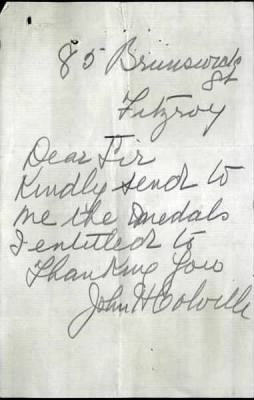 85 Brunswick
St
Fitzroy
Dear Sir
Kindly send to
me the medals
I entitled to
Thanking you
John H Colville